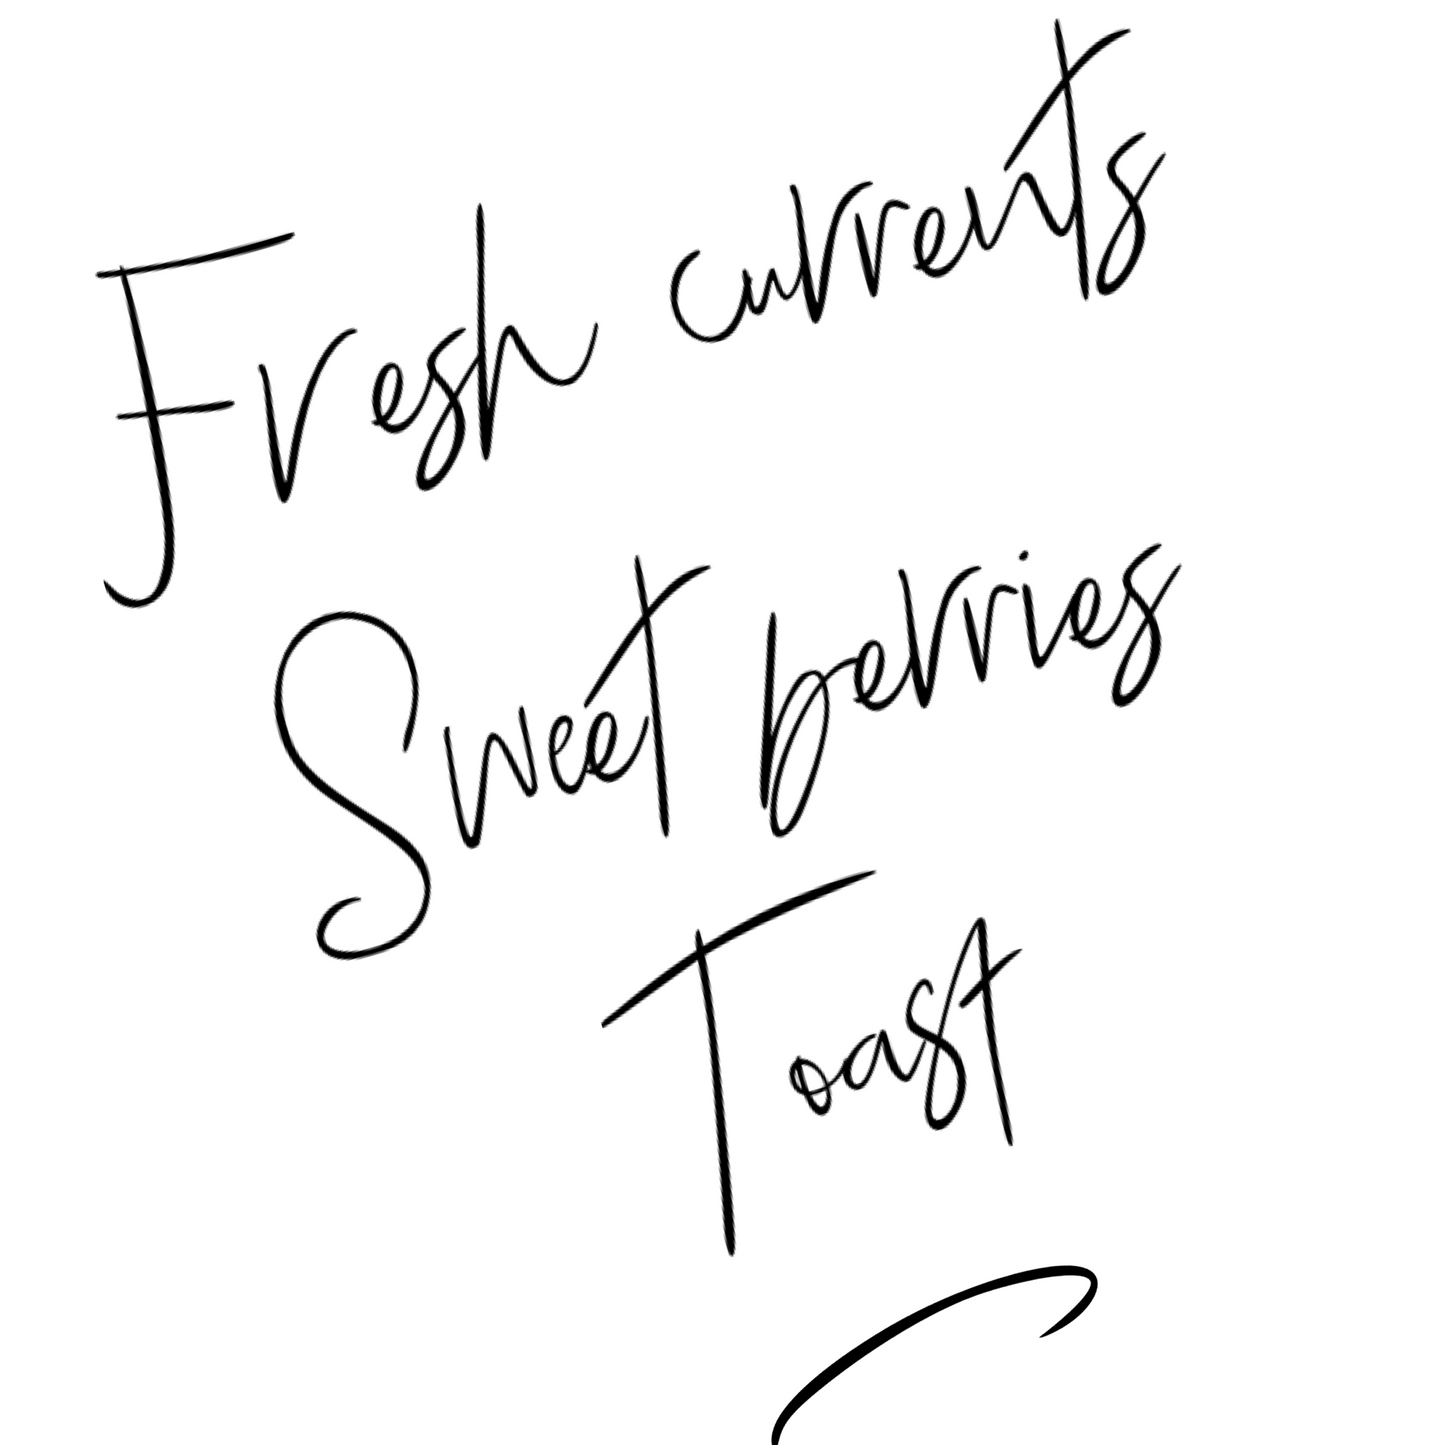 Fresh currents
Sweet berries
Toast